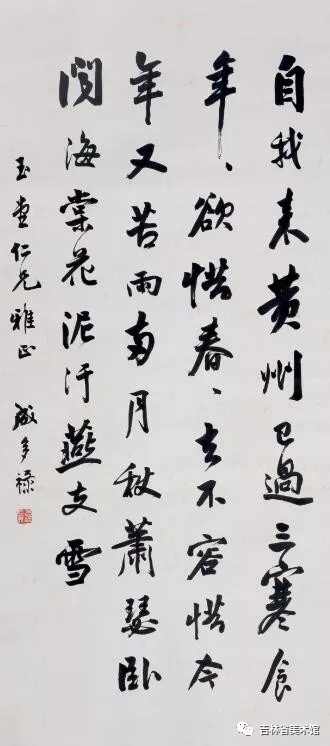 自我来黄州已過三寒食
年、欲惜春、去不容惜今
年又苦雨兩月秋蕭瑟卧
聞海棠花泥汙燕支雪
玉堂仁兄雅正 成多禄
吉林省美术馆